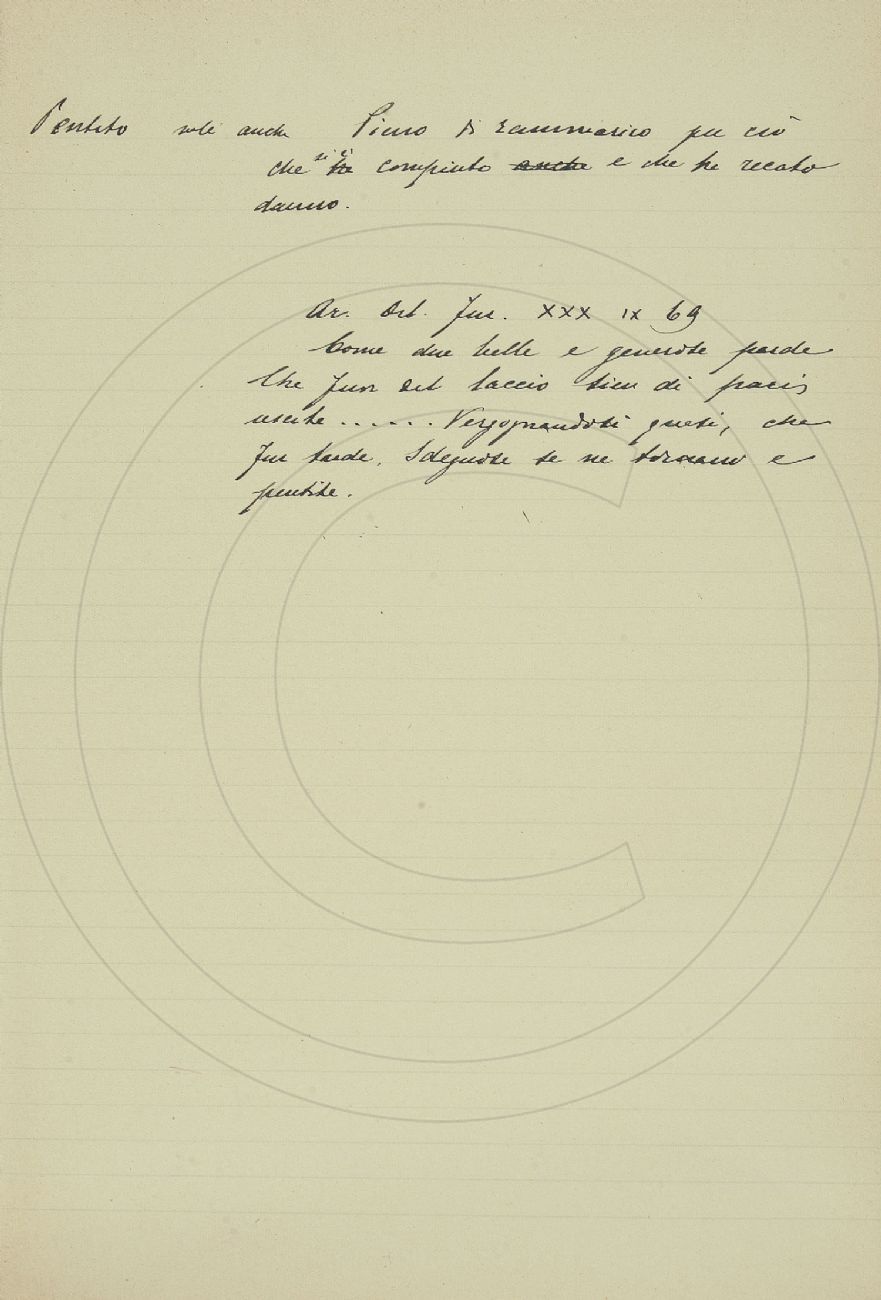 Pentito vale anche Pieno di rammarico per ciò
che si è ha compiuto anche e che ha recato
danno.
Ar. Orl. Fur. XXX IX 69
Come due belle e generose parde
Che fuor del laccio sien di pari
uscite ...... Vergognandosi quasi, che
fur tarde, Sdegnose se ne tornano e
pentite.